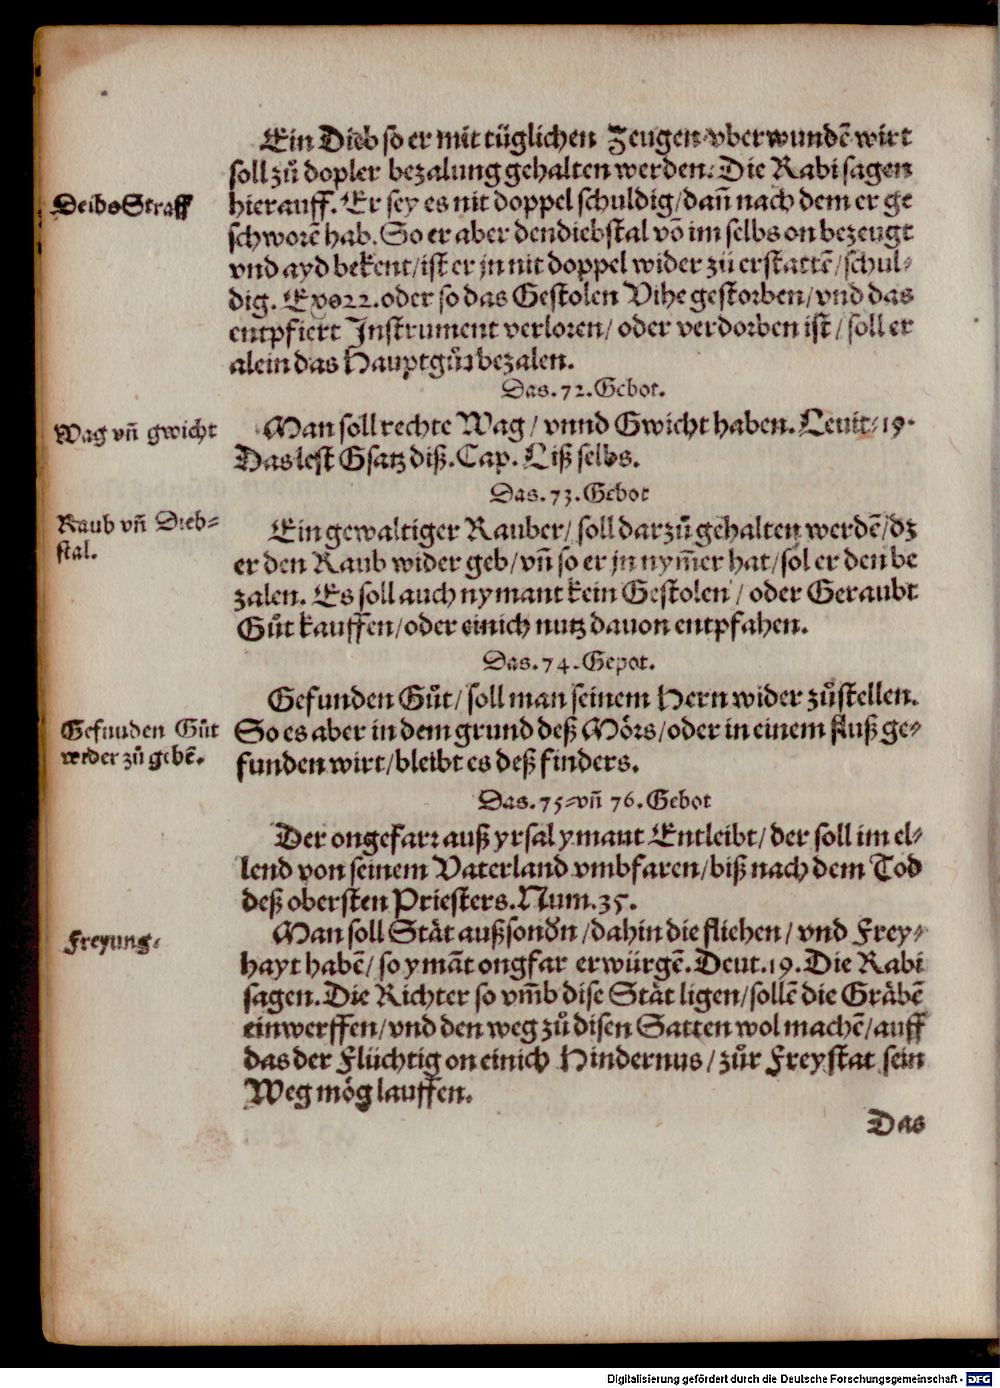 Ein Dieb so er mit tüglichen Zeugen vberwundē wirt
soll zů dopler bezalung gehalten werden. Die Rabi sagen
Deibs Straff
hierauff. Er sey es nit doppel schuldig/ dañ nach dem er ge
schworē hab. So er aber den diebstal vō im selbs on bezeugt
vnd ayd bekent/ ist er jn nit doppel wider zů erstattē/ schul-
dig. Exo 22. oder so das Gestolen Vihe gestorben/ vnd das
entpfiert Instrument verloren/ oder verdorben ist/ soll er
alein das Hauptgůt bezalen.
Das. 72. Gebot.
Wag vñ gwicht
Man soll rechte Wag/ vnnd Gwicht haben. Leuit. 19.
Das lest Gsatz diß. Cap. Liß selbs.
Das. 73. Gebot
Raub vñ Dieb-
stal.
Ein gewaltiger Rauber/ soll darzů gehalten werdē/ dz
er den Raub wider geb/ vñ so er jn nym̄er hat/ sol er den be
zalen. Es soll auch nymant kein Gestolen/ oder Geraubt
Gůt kauffen/ oder einich nutz dauon entpfahen.
Das. 74. Gepot.
Gefunden Gůt/ soll man seinem Hern wider zůstellen.
Gefunden Gůt
wider zů gebē.
So es aber in dem grund deß Mörs/ oder in einem fluß ge-
funden wirt/ bleibt es deß finders.
Das. 75. vñ 76. Gebot
Der ongefar: auß yrsal ymant Entleibt/ der soll im el-
lend von seinem Vaterland vmbfaren/ biß nach dem Tod
deß obersten Priesters. Num. 35.
Freyung.
Man soll Stät außsondn/ dahin die fliehen/ vnd Frey-
hayt habē/ so ymāt ongfar erwürgē. Deut. 19. Die Rabi
sagen. Die Richter so vm̄b dise Stät ligen/ sollē die Gräbē
einwerffen/ vnd den weg zů disen Satten wol machē/ auff
das der Flüchtig on einich Hindernus/ zůr Freystat sein
Weg mög lauffen.
Das
Digitalisierung gefördert durch die Deutsche Forschungsgemeinschaft - DFG